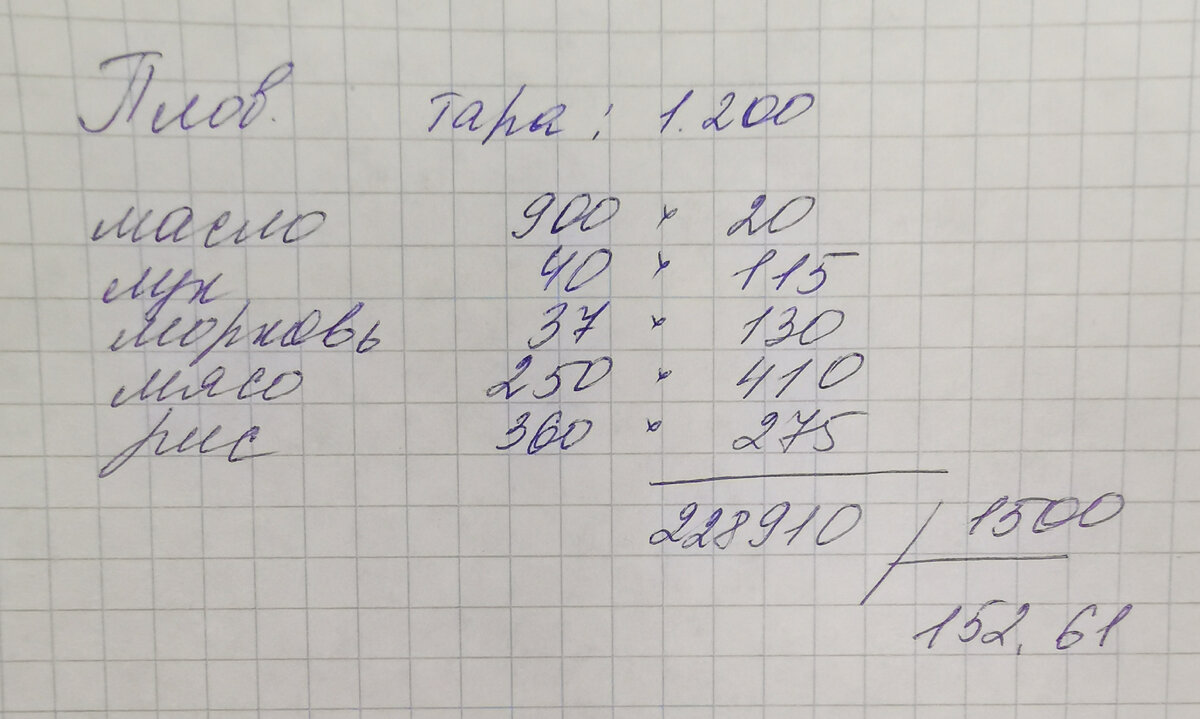 Плов. Тара: 1.200
масло 900 × 20
лук 40 × 115
морковь 37 × 130
мясо 250 × 410
рис 360 × 275
228910 / 1500
152,61